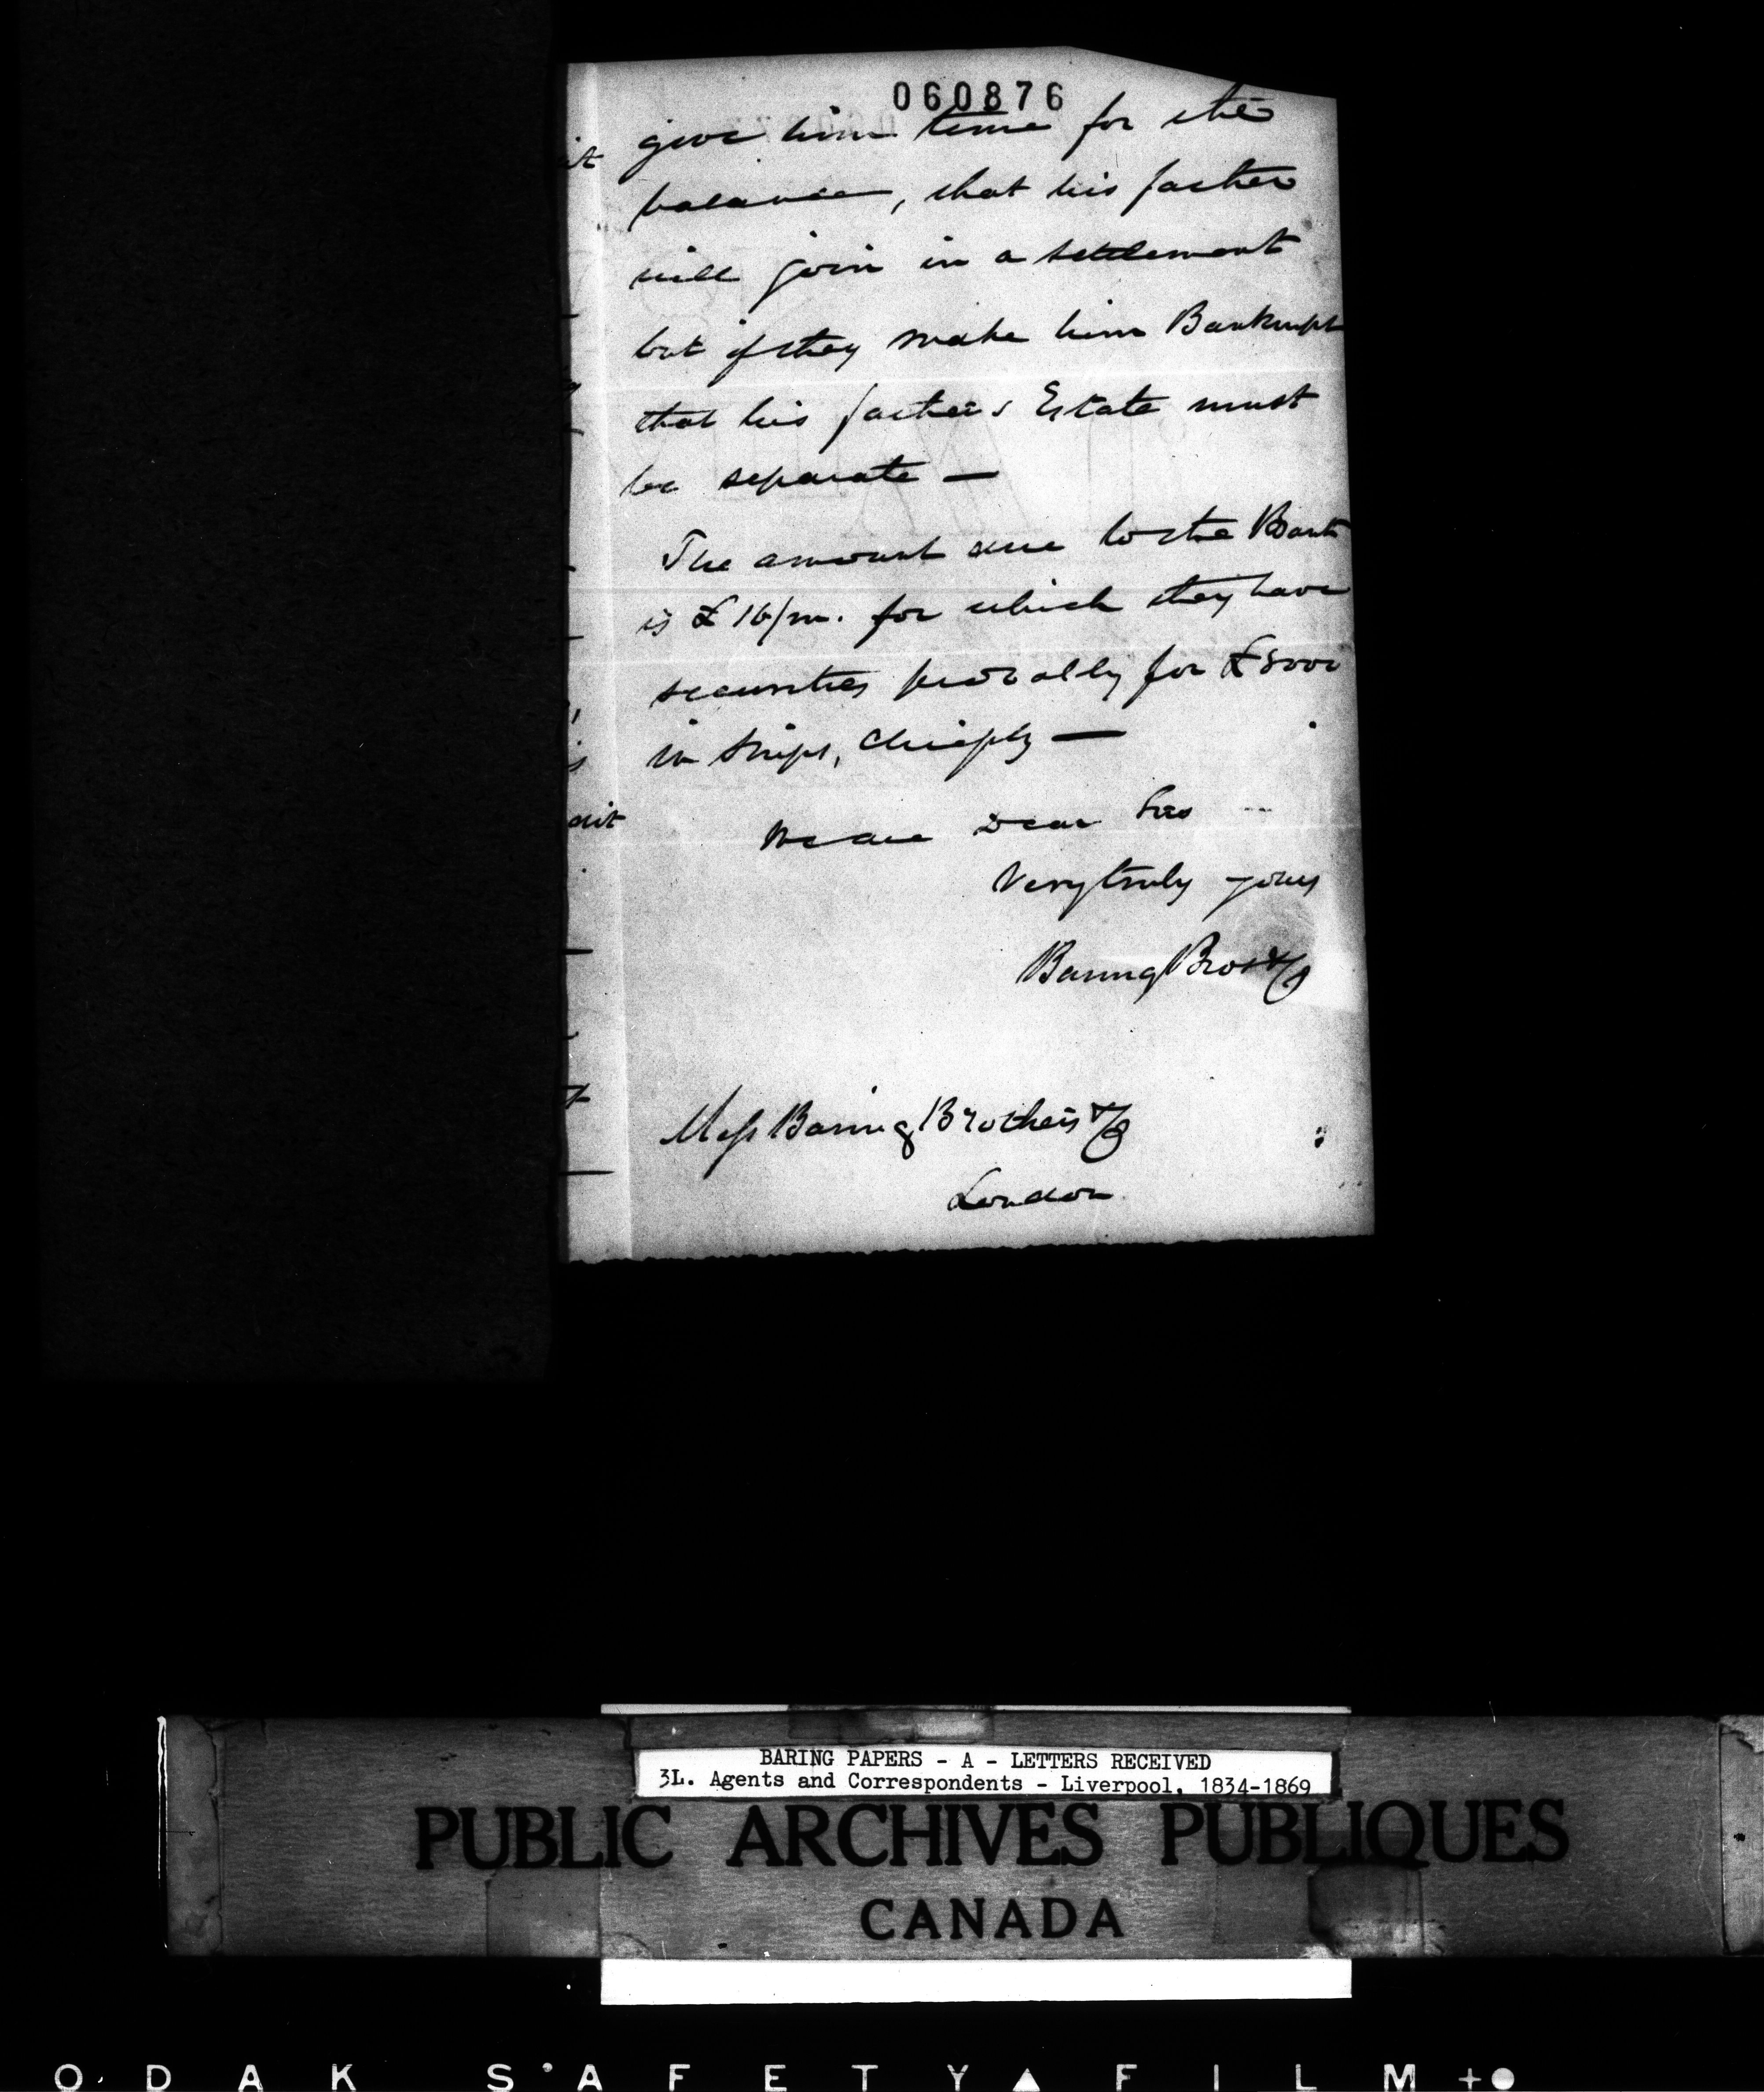 060876
give him time for the
balance, that his father
will join in a settlement
but if they make him Bankrupt
that his father's Estate must
be separate —
The amount due to the Bank
is £16/m. for which they have
securities probably for £8000
in Ships, chiefly —
We are Dear Sirs
Very truly yours
Baring Bros & Co
Mess Baring Brothers & Co
London
BARING PAPERS - A - LETTERS RECEIVED
3L. Agents and Correspondents - Liverpool, 1834-1869
PUBLIC ARCHIVES PUBLIQUES
CANADA
ODAK SAFETY FILM